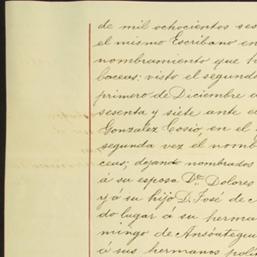 de mil ochocientos ses
el mismo Escribano en
nombramiento que h
baceas: visto el segundo
primero de Diciembre d
sesenta y siete ante e
Gonzalez Cosio, en el
segunda vez el nomb
ceas; dejando nombrados
á su esposa Dª Dolores
y á su hijo D. José de
do lugar á su herma
mingo de Ansóategui
á sus hermanos polí